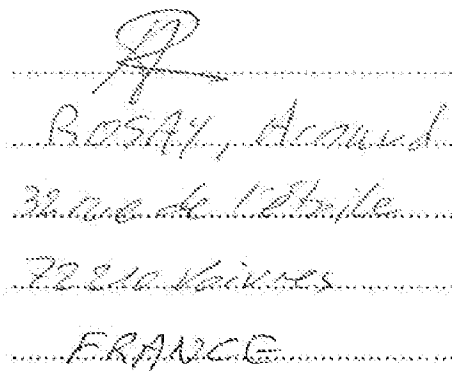 ROSAY, Arnaud
32 rue de l'Étoile
72210 Voivres
FRANCE